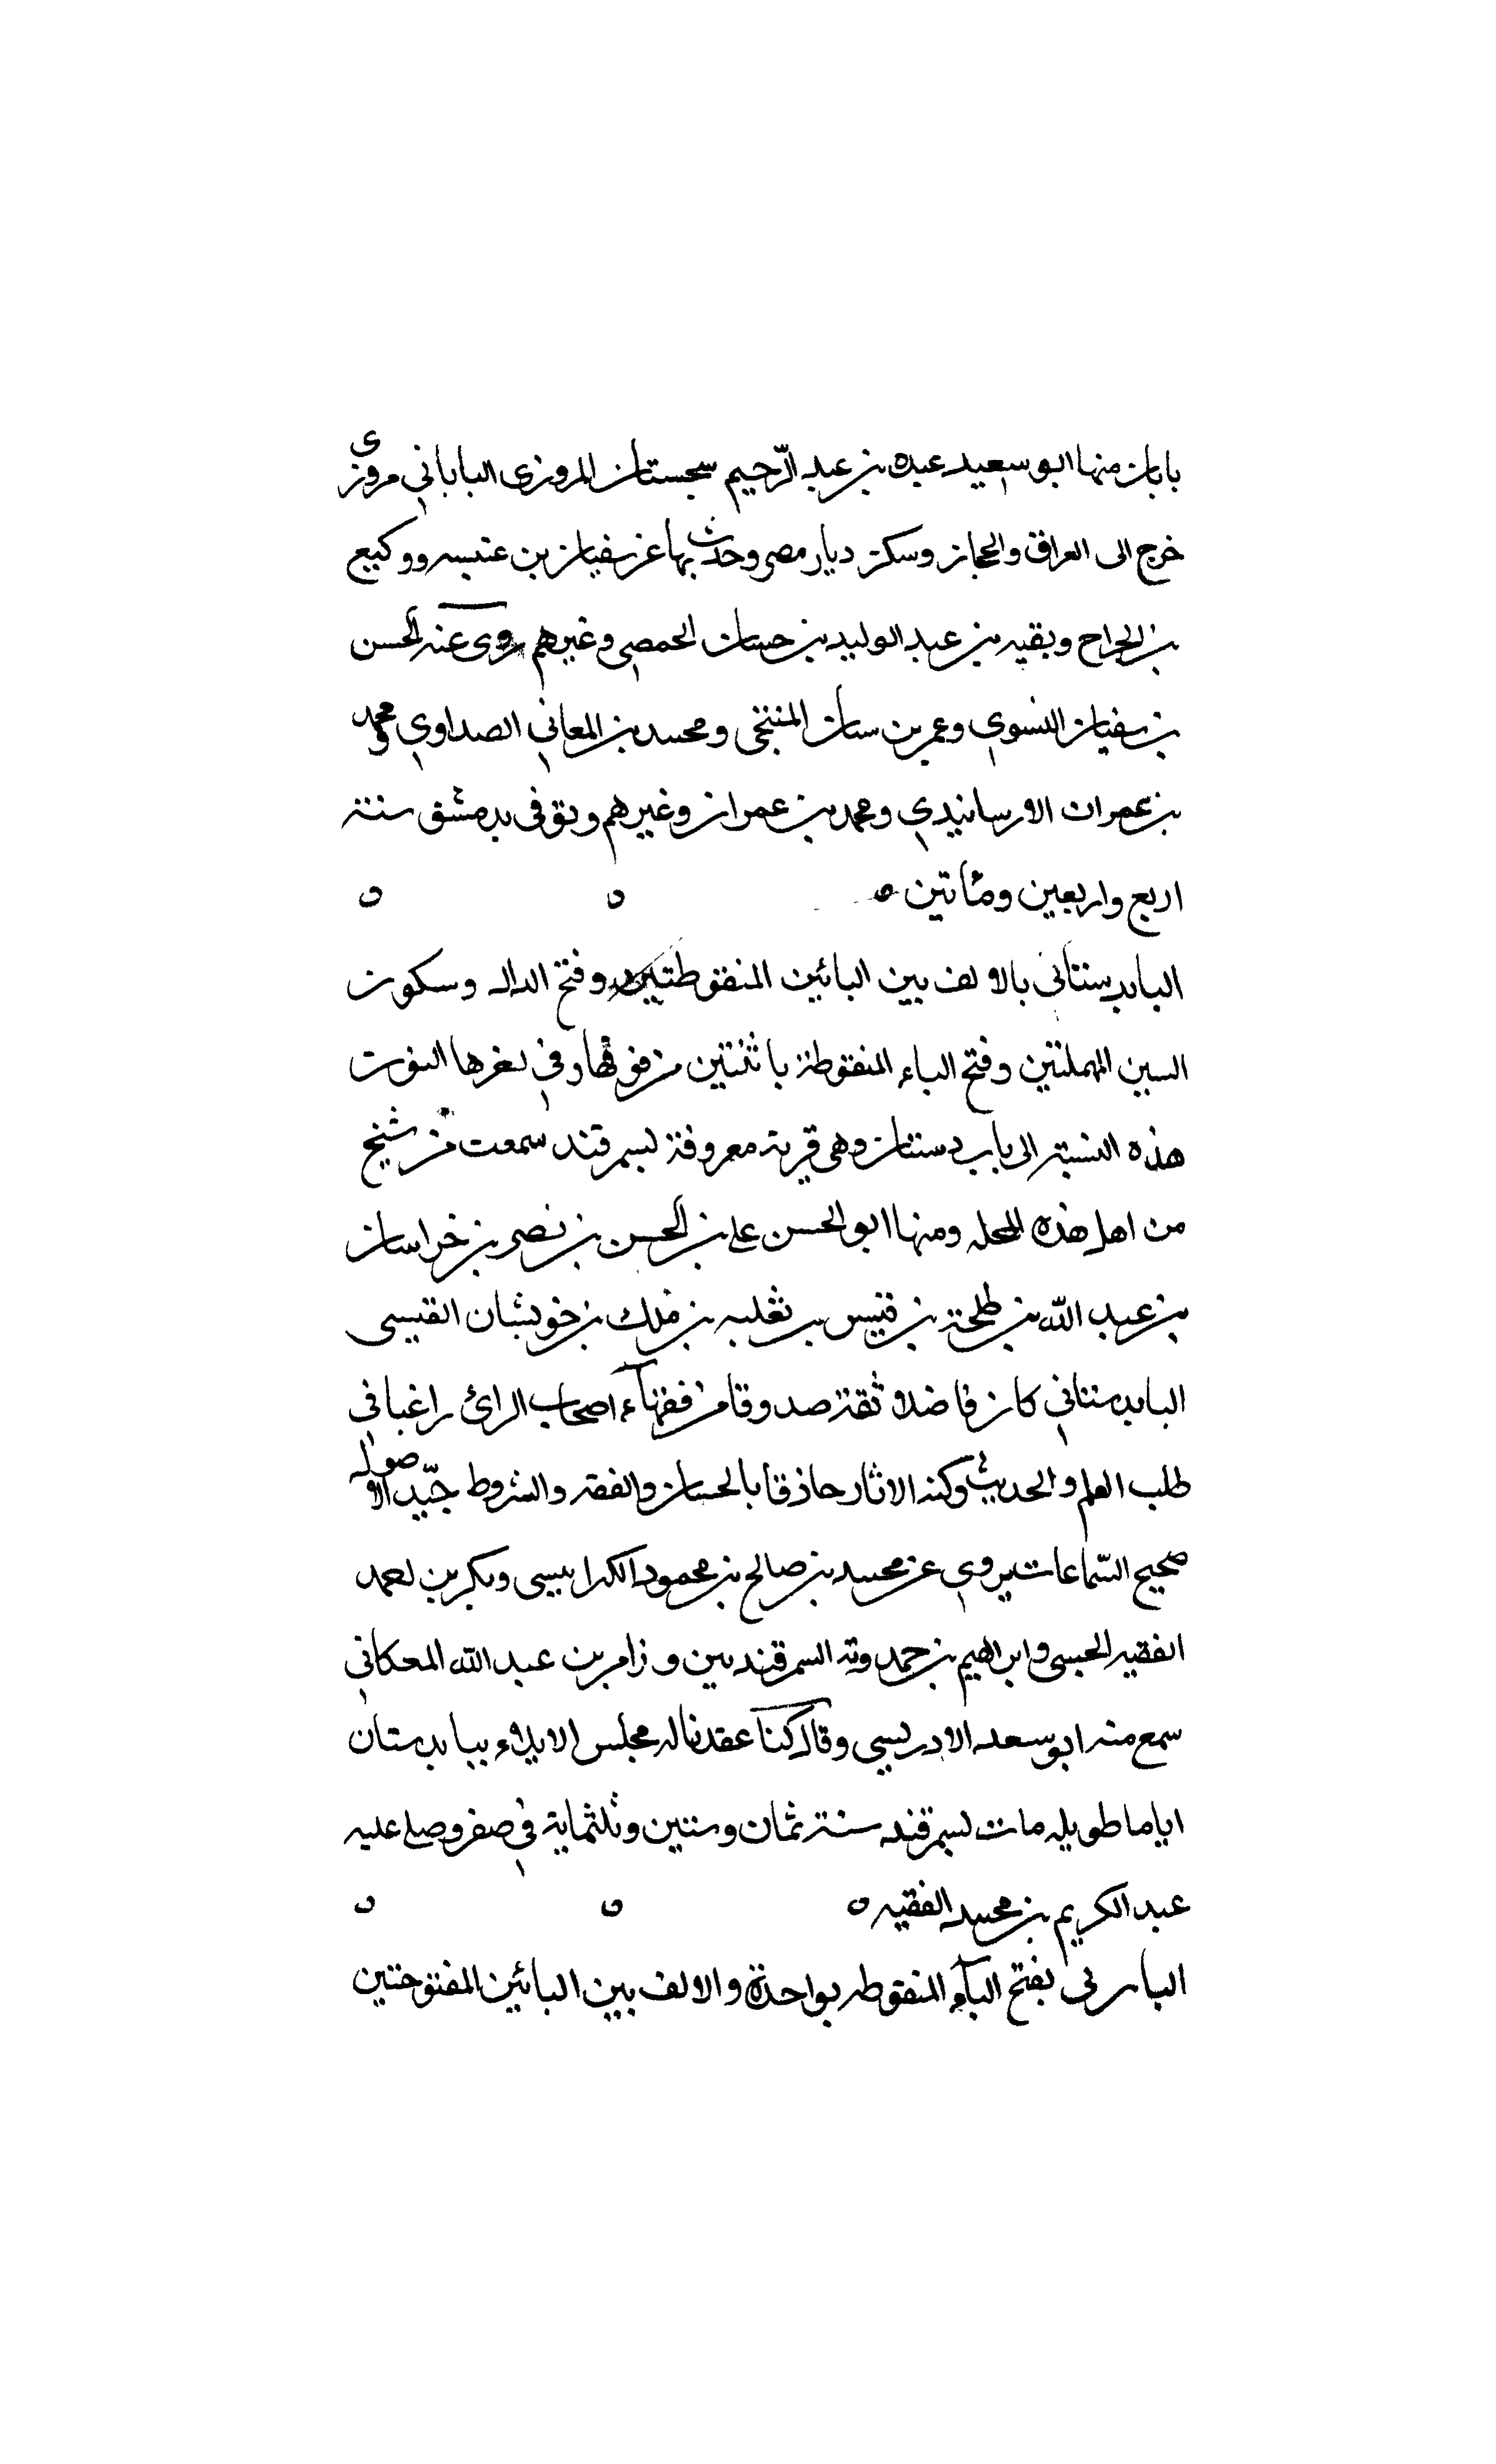 بابان منها ابو سعيد عبده بن عبد الرّحيم سجستان المروزى الباباني مروزى
خرج الى العراق والحجاز وسكن ديار مصر وحدث بها عن سفيان بن عنبسه ووكيع
بن الجراح وبقيه بن عبد الوليد بن حسان الحمصي وغيرهم روى عنه الحسن
بن سفيان النسوي وعمر بن سنان المنبخى ومحمد بن المعاني الصداوي ومحمد
بن عمران الارسانيدي ومحمد بن عمران وغيرهم وتوفى بدمشق سنة
اربع واربعين ومأتين ه ه ه
البابدستاني بالالف بين البائين المنقوطتين وفتح الدال وسكون
السين المهملتين وفتح التاء المنقوطة باثنتين من فوقها وفي اخرها النون
هذه النسبة الى باب دستان وهى قرية معروفة بسمرقند سمعت من شيخ
من اهل هذه المحله ومنها ابو الحسن على بن الحسن بن نصر بن خراسان
بن عبد الله بن طلحة بن قيس بن ثعلبه بن ملك بن خويشان القيسى
البابدستاني كان فاضلا ثقة صدوقا من فقهآء اصحاب الرائ راغبا في
طلب العلم والحديث وكتبه الاثار حاذقا بالحسان والفقه والشروط جيّد الاصول
صحيح السّماعات يروي عن محمد بن صالح بن محمود الكرابيسى وبكر بن احمد
الفقيه الحبسى وابراهيم بن حمدويه السمرقنديين وزامر بن عبد الله المعكاني
سمع منه ابو سعد الادريسي وقال كنا عقدنا له مجلس الاملاء ببابدستان
اياما طويله مات بسمرقند سنة ثمان وستين وثلثماية في صفر وصلى عليه
عبد الكريم بن محمد الفقيه ه ه ه
البابرتى بفتح الباء المنقوطه بواحدة والالف بين البائين المفتوحتين